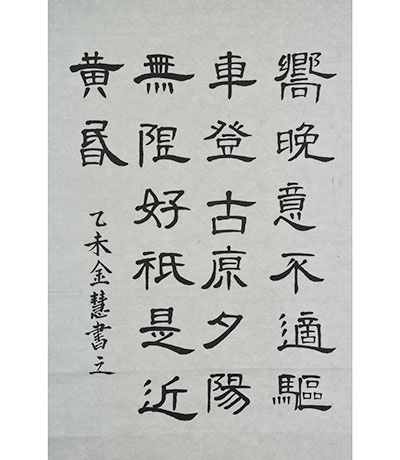 嚮晚意不適驅
車登古原夕陽
無限好祇是近
黄昏
乙未金慧書之